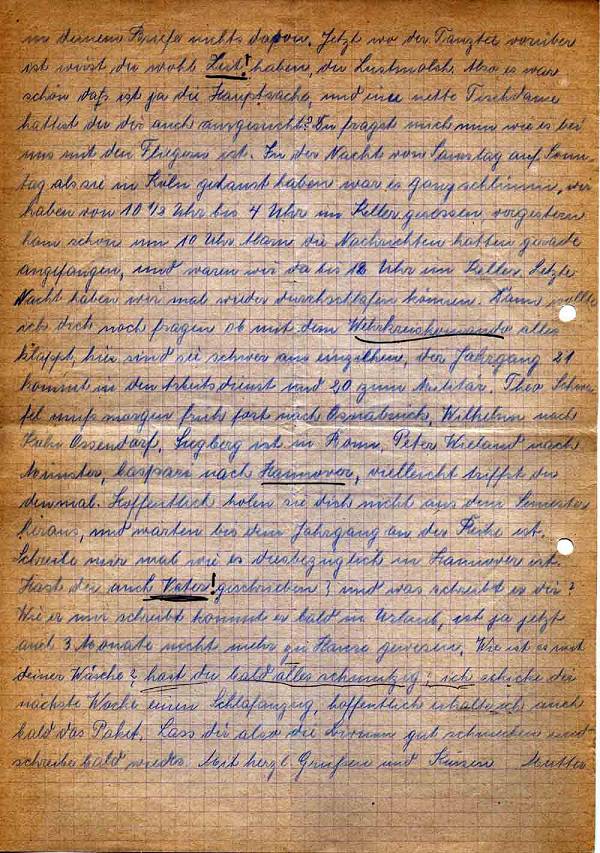 in deinem Briefe nichts davon. Jetzt wo der Tanztee vorüber
ist wirst du wohl Zeit! haben, du Lustmolch. Also es war
schön daß ist ja die Hauptsache, und eine nette Tischdame
hattest du dir auch ausgesucht? Du fragst mich nun wie es bei
uns mit den Fliegern ist. In der Nacht von Samstag auf Sonn-
tag als sie in Köln gehaust haben war es ganz schlimm, wir
haben von 10 1/2 Uhr bis 4 Uhr im Keller gesessen, vorgestern
kam schon um 10 Uhr Alarm die Nachrichten hatten gerade
angefangen, und waren wir da bis 12 Uhr im Keller. Letzte
Nacht haben wir mal wieder durchschlafen können. Dann wollte
ich dich noch fragen ob mit dem Wehrkreiskommando alles
klappt, hier sind sie schwer am einziehen, der Jahrgang 21
kommt in den Arbeitsdienst und 20 zum Militär. Theo
muß morgen früh fort nach Osnabrück, Wilhelm nach
Köln Ossendorf, Siegberg ist in Bonn, Peter Wieland nach
Münster, Caspari nach Hannover, vielleicht triffst du
den mal. Hoffentlich holen sie dich nicht aus dem Semester
heraus, und warten bis dein Jahrgang an der Reihe ist.
Schreibe mir mal wie es diesbezüglich in Hannover ist.
Hast du auch Vater! geschrieben? und was schreibt er dir?
Wie er mir schreibt kommt er bald in Urlaub, ist ja jetzt
auch 3 Monate nicht mehr zu Hause gewesen. Wie ist es mit
deiner Wäsche? hast du bald alles schmutzig? ich schicke dir
nächste Woche einen Schlafanzug, hoffentlich erhalte ich auch
bald das Paket. Lass dir also die gut schmecken und
schreibe bald wieder. Mit herzl. Grüßen und Küssen Mutter